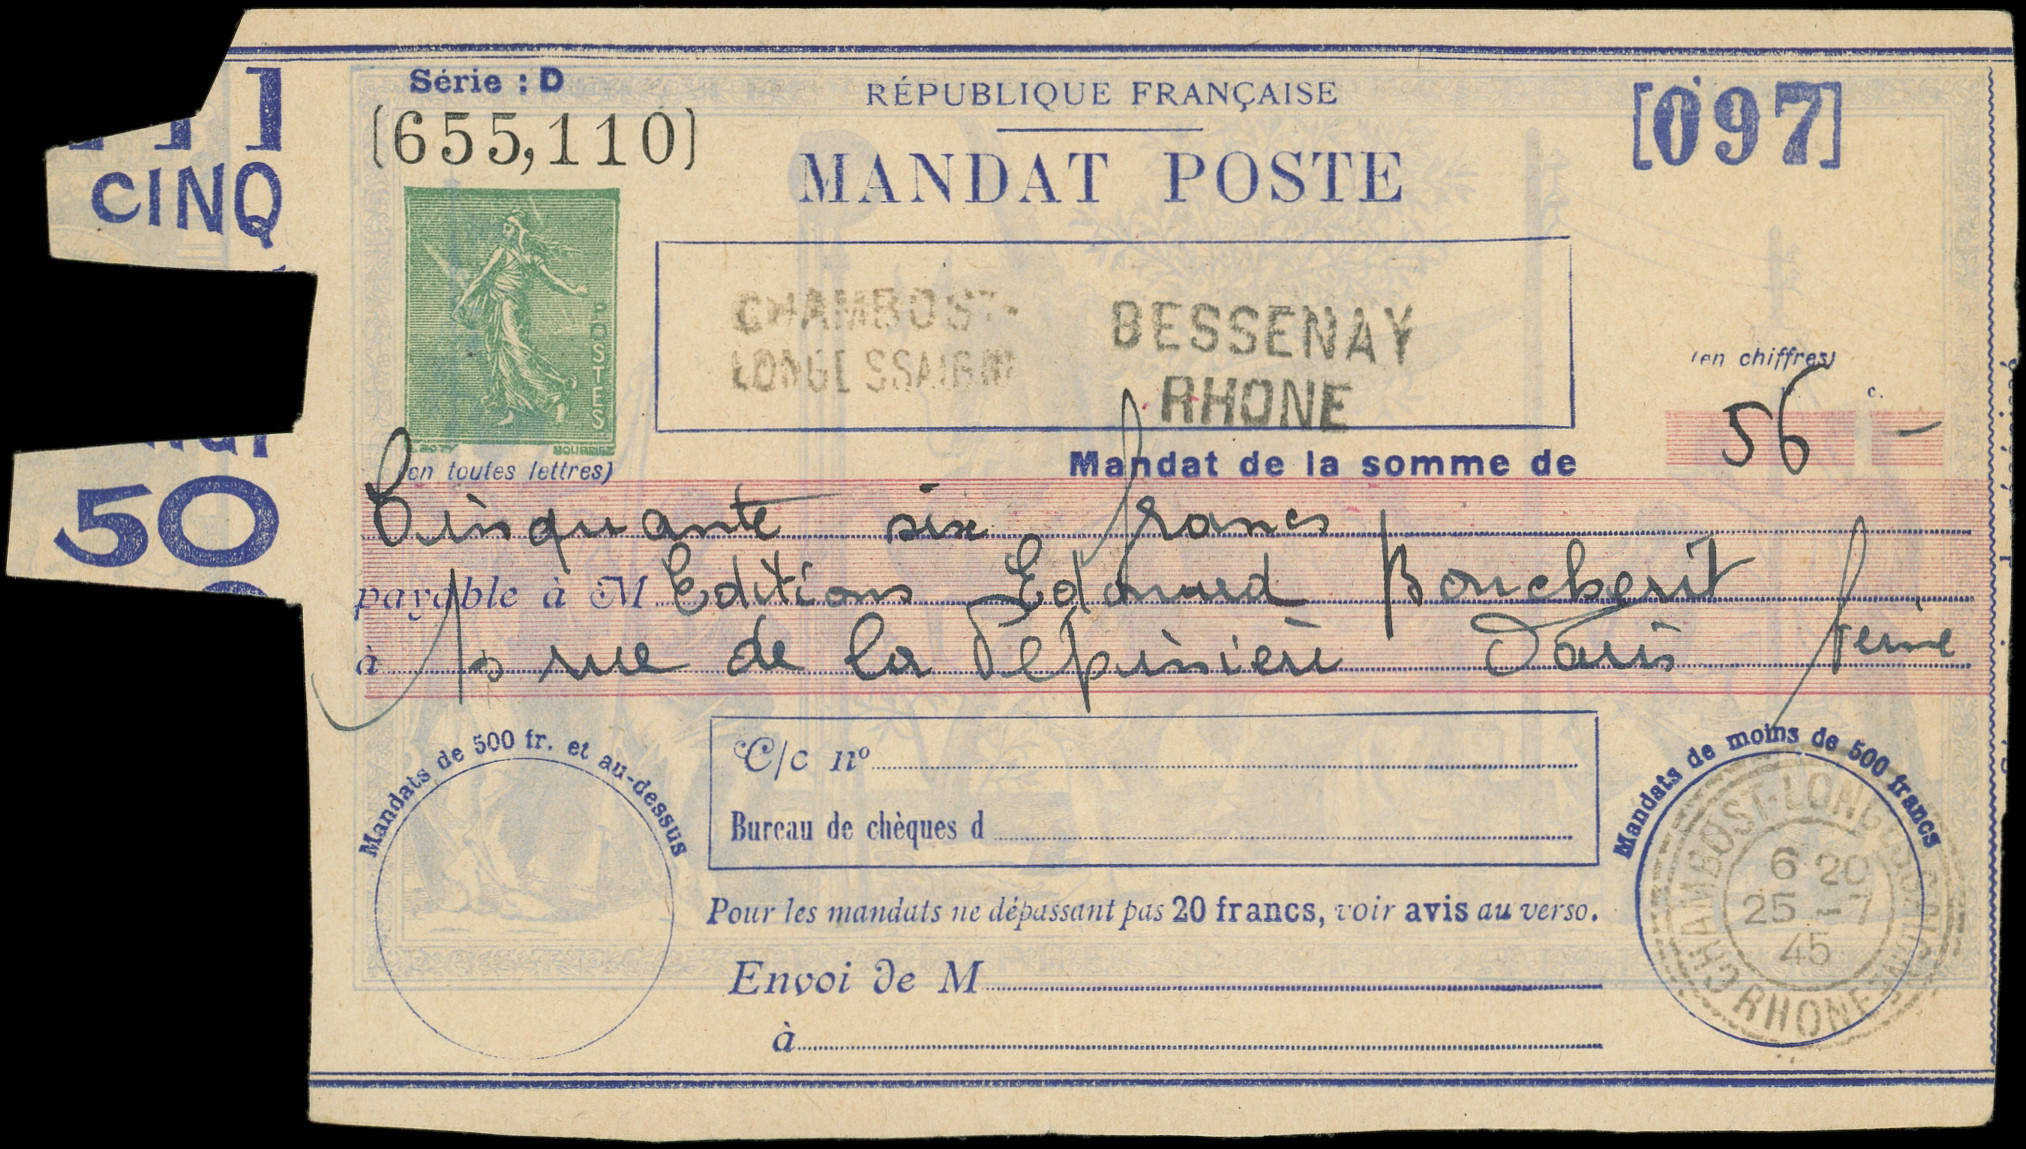 Série : D
(655,110)
RÉPUBLIQUE FRANÇAISE
MANDAT POSTE
[097]
CINQ
50
POSTES
CHAMBOST-
LONGESSAIGNE
BESSENAY
RHONE
(en chiffres)
c.
56 -
(en toutes lettres)
Mandat de la somme de
Cinquante six francs
payable à M Editions Edouard Boucherit
à rue de la Pépinière Paris Seine
Mandats de 500 fr. et au-dessus
C/c nº
Bureau de chèques d
Pour les mandats ne dépassant pas 20 francs, voir avis au verso.
Envoi de M
à
Mandats de moins de 500 francs
CHAMBOST-LONGESSAIGNE
6 20
25 - 7
45
RHONE